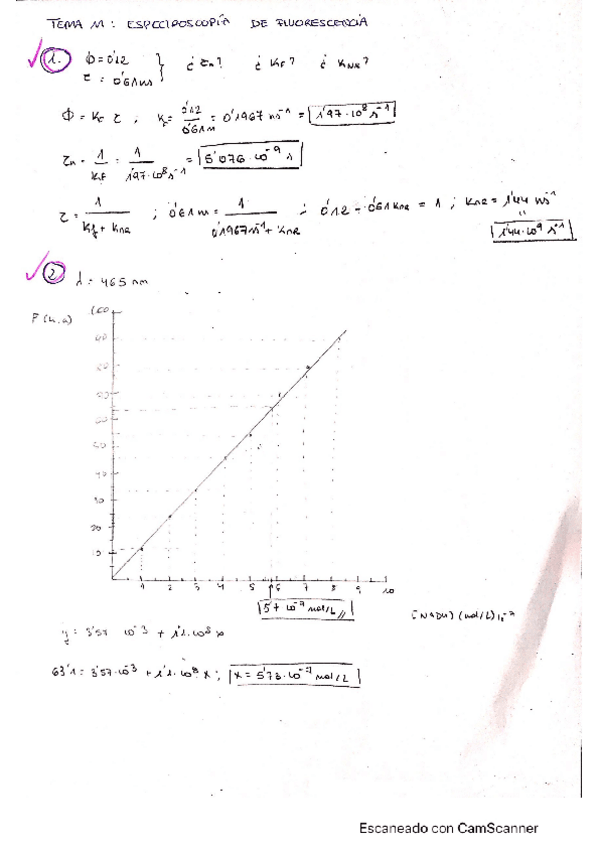 TEMA 11: ESPECTROSCOPÍA DE FLUORESCENCIA
1. Φ = 0'12 } ¿τn? ¿KF? ¿KNR?
τ = 0'61 ns
Φ = Kf τ ; Kf = 0'12 / 0'61 ns = 0'1967 ns⁻¹ = 1'97·10⁸ s⁻¹
τn = 1 / Kf = 1 / 1'97·10⁸ s⁻¹ = 5'076·10⁻⁹ s
τ = 1 / Kf + KNR ; 0'61 ns = 1 / 0'1967 ns⁻¹ + KNR ; 0'12 - 0'61 KNR = 1 ; KNR = 1'44 ns⁻¹
"
1'44·10⁹ s⁻¹
2. λ = 465 nm
F (u.a)
100
50
40
30
20
10
1 2 3 4 5 6 7 8 9 10
[NADH] (mol/L) 10⁻⁷
y = 3'57·10⁻³ + 1'1·10⁸ x
63'1 = 3'57·10⁻³ + 1'1·10⁸ x ; x = 5'73·10⁻⁷ mol/L
Escaneado con CamScanner